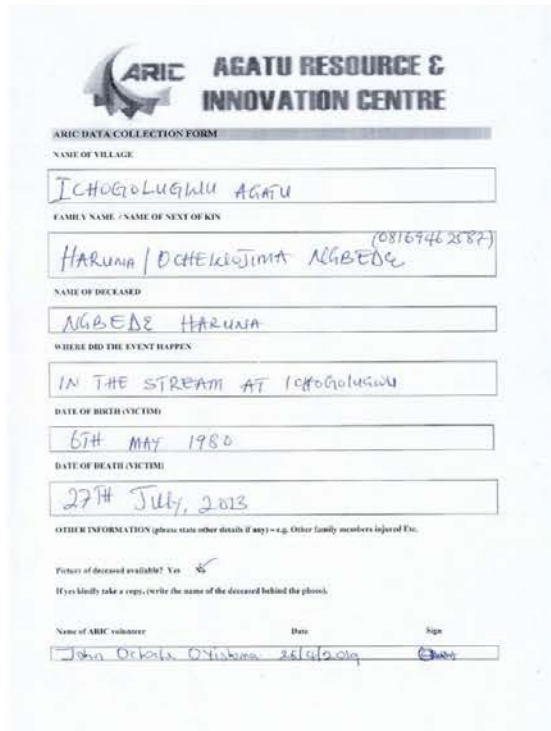 ARIC AGATU RESOURCE &
INNOVATION CENTRE
ARIC DATA COLLECTION FORM
NAME OF VILLAGE
ICHOGOLUGWU AGATU
FAMILY NAME / NAME OF NEXT OF KIN
(08169462587)
HARUNA / OCHEKWOJIMA NGBEDE
NAME OF DECEASED
NGBEDE HARUNA
WHERE DID THE EVENT HAPPEN
IN THE STREAM AT ICHOGOLUGWU
DATE OF BIRTH (VICTIM)
6TH MAY 1980
DATE OF DEATH (VICTIM)
27TH JULY, 2013
OTHER INFORMATION (please state other details if any) – e.g. Other family members injured Etc.
Picture of deceased available? Yes
If yes kindly take a copy. (write the name of the deceased behind the photo).
Name of ARIC volunteer Date Sign
John 25/4/2019